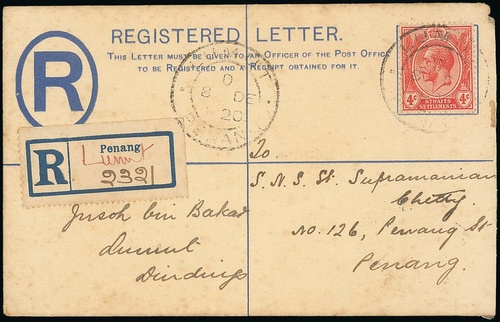 REGISTERED LETTER.
THIS LETTER MUST BE GIVEN TO AN OFFICER OF THE POST OFFICE
TO BE REGISTERED AND A RECEIPT OBTAINED FOR IT.
R
4c 4c
STRAITS
SETTLEMENTS
LUMUT
D
8 DE
20
PENANG
R
Penang
Lumut
To.
S.N.S. St. Supramanian
Chetty.
No. 126, Penang St
Penang.
Jusoh bin Bakar
Lumut
Dindings